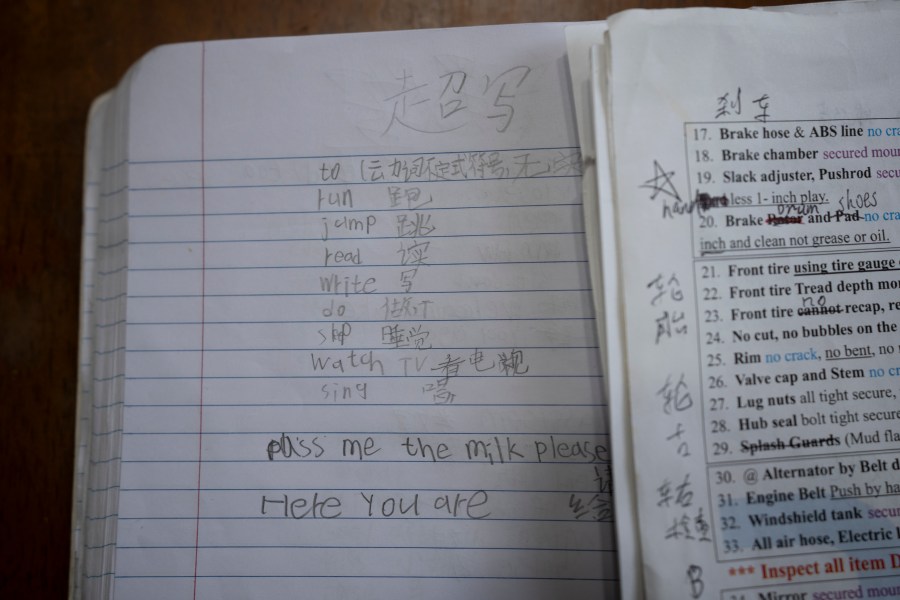 超写
to (云力词不定式符号,无
run 跑
jamp 跳
read 读
write 写
do 做
slip 睡觉
watch TV 看电视
sing 唱
pass me the milk please
Here You are
刹车
17. Brake hose & ABS line no cra
18. Brake chamber secured moun
19. Slack adjuster, Pushrod secu
less 1- inch play.
drum shoes
20. Brake and Pad no cra
inch and clean not grease or oil.
21. Front tire using tire gauge
22. Front tire Tread depth mor
no
23. Front tire cannot recap, re
24. No cut, no bubbles on the
25. Rim no crack, no bent, no
26. Valve cap and Stem no cr
27. Lug nuts all tight secure,
28. Hub seal bolt tight secure
29. Splash Guards (Mud fla
轮
胎
轮
30. @ Alternator by Belt d
31. Engine Belt Push by ha
32. Windshield tank secur
33. All air hose, Electric
检查
*** Inspect all item D
B
34. Mirror secured moun